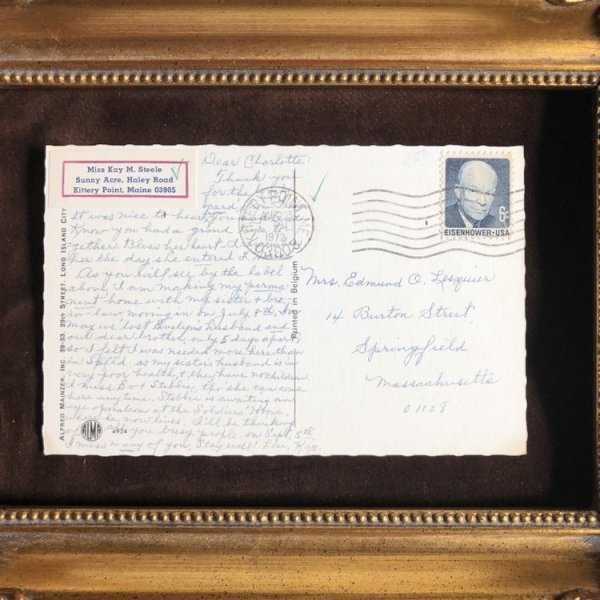 Miss Kay M. Steele
Sunny Acre, Haley Road
Kittery Point, Maine 03905
Dear Charlotte
Thank you
for the
card,
It was nice to hear
know you had a grand time to-
gether. Bless her heart.
the day she entered
As you will see by the label
above, I am making my perma-
nent home with my sister & bro.
in-law moving in on July 8th. In
may we lost Evelyn's husband and
our dear brother, only 5 days apart
so I felt I was needed more here than
in Spfld. as my sister's husband is in
very poor health, & they have no children
I miss Ev & Stebbie, tho' she can come
here any time. Stebbie is awaiting an
eye operation at the Soldiers' Home
where he now lives. I'll be thinking
of you busy people on Sept. 5th
I miss many of you. Stay well! Love, Kay
ALFRED MAINZER, INC. 39-33, 29th STREET, LONG ISLAND CITY
ALMA
493A
Printed in Belgium
1972
6¢
EISENHOWER·USA
Mrs. Edmund O. Lesquier
14 Burton Street
Springfield
Massachusetts
01108